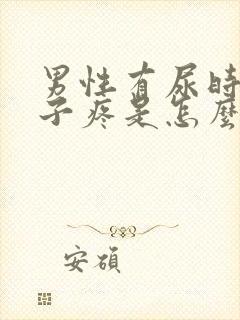 男性有尿时
子疼是怎麼
安碩